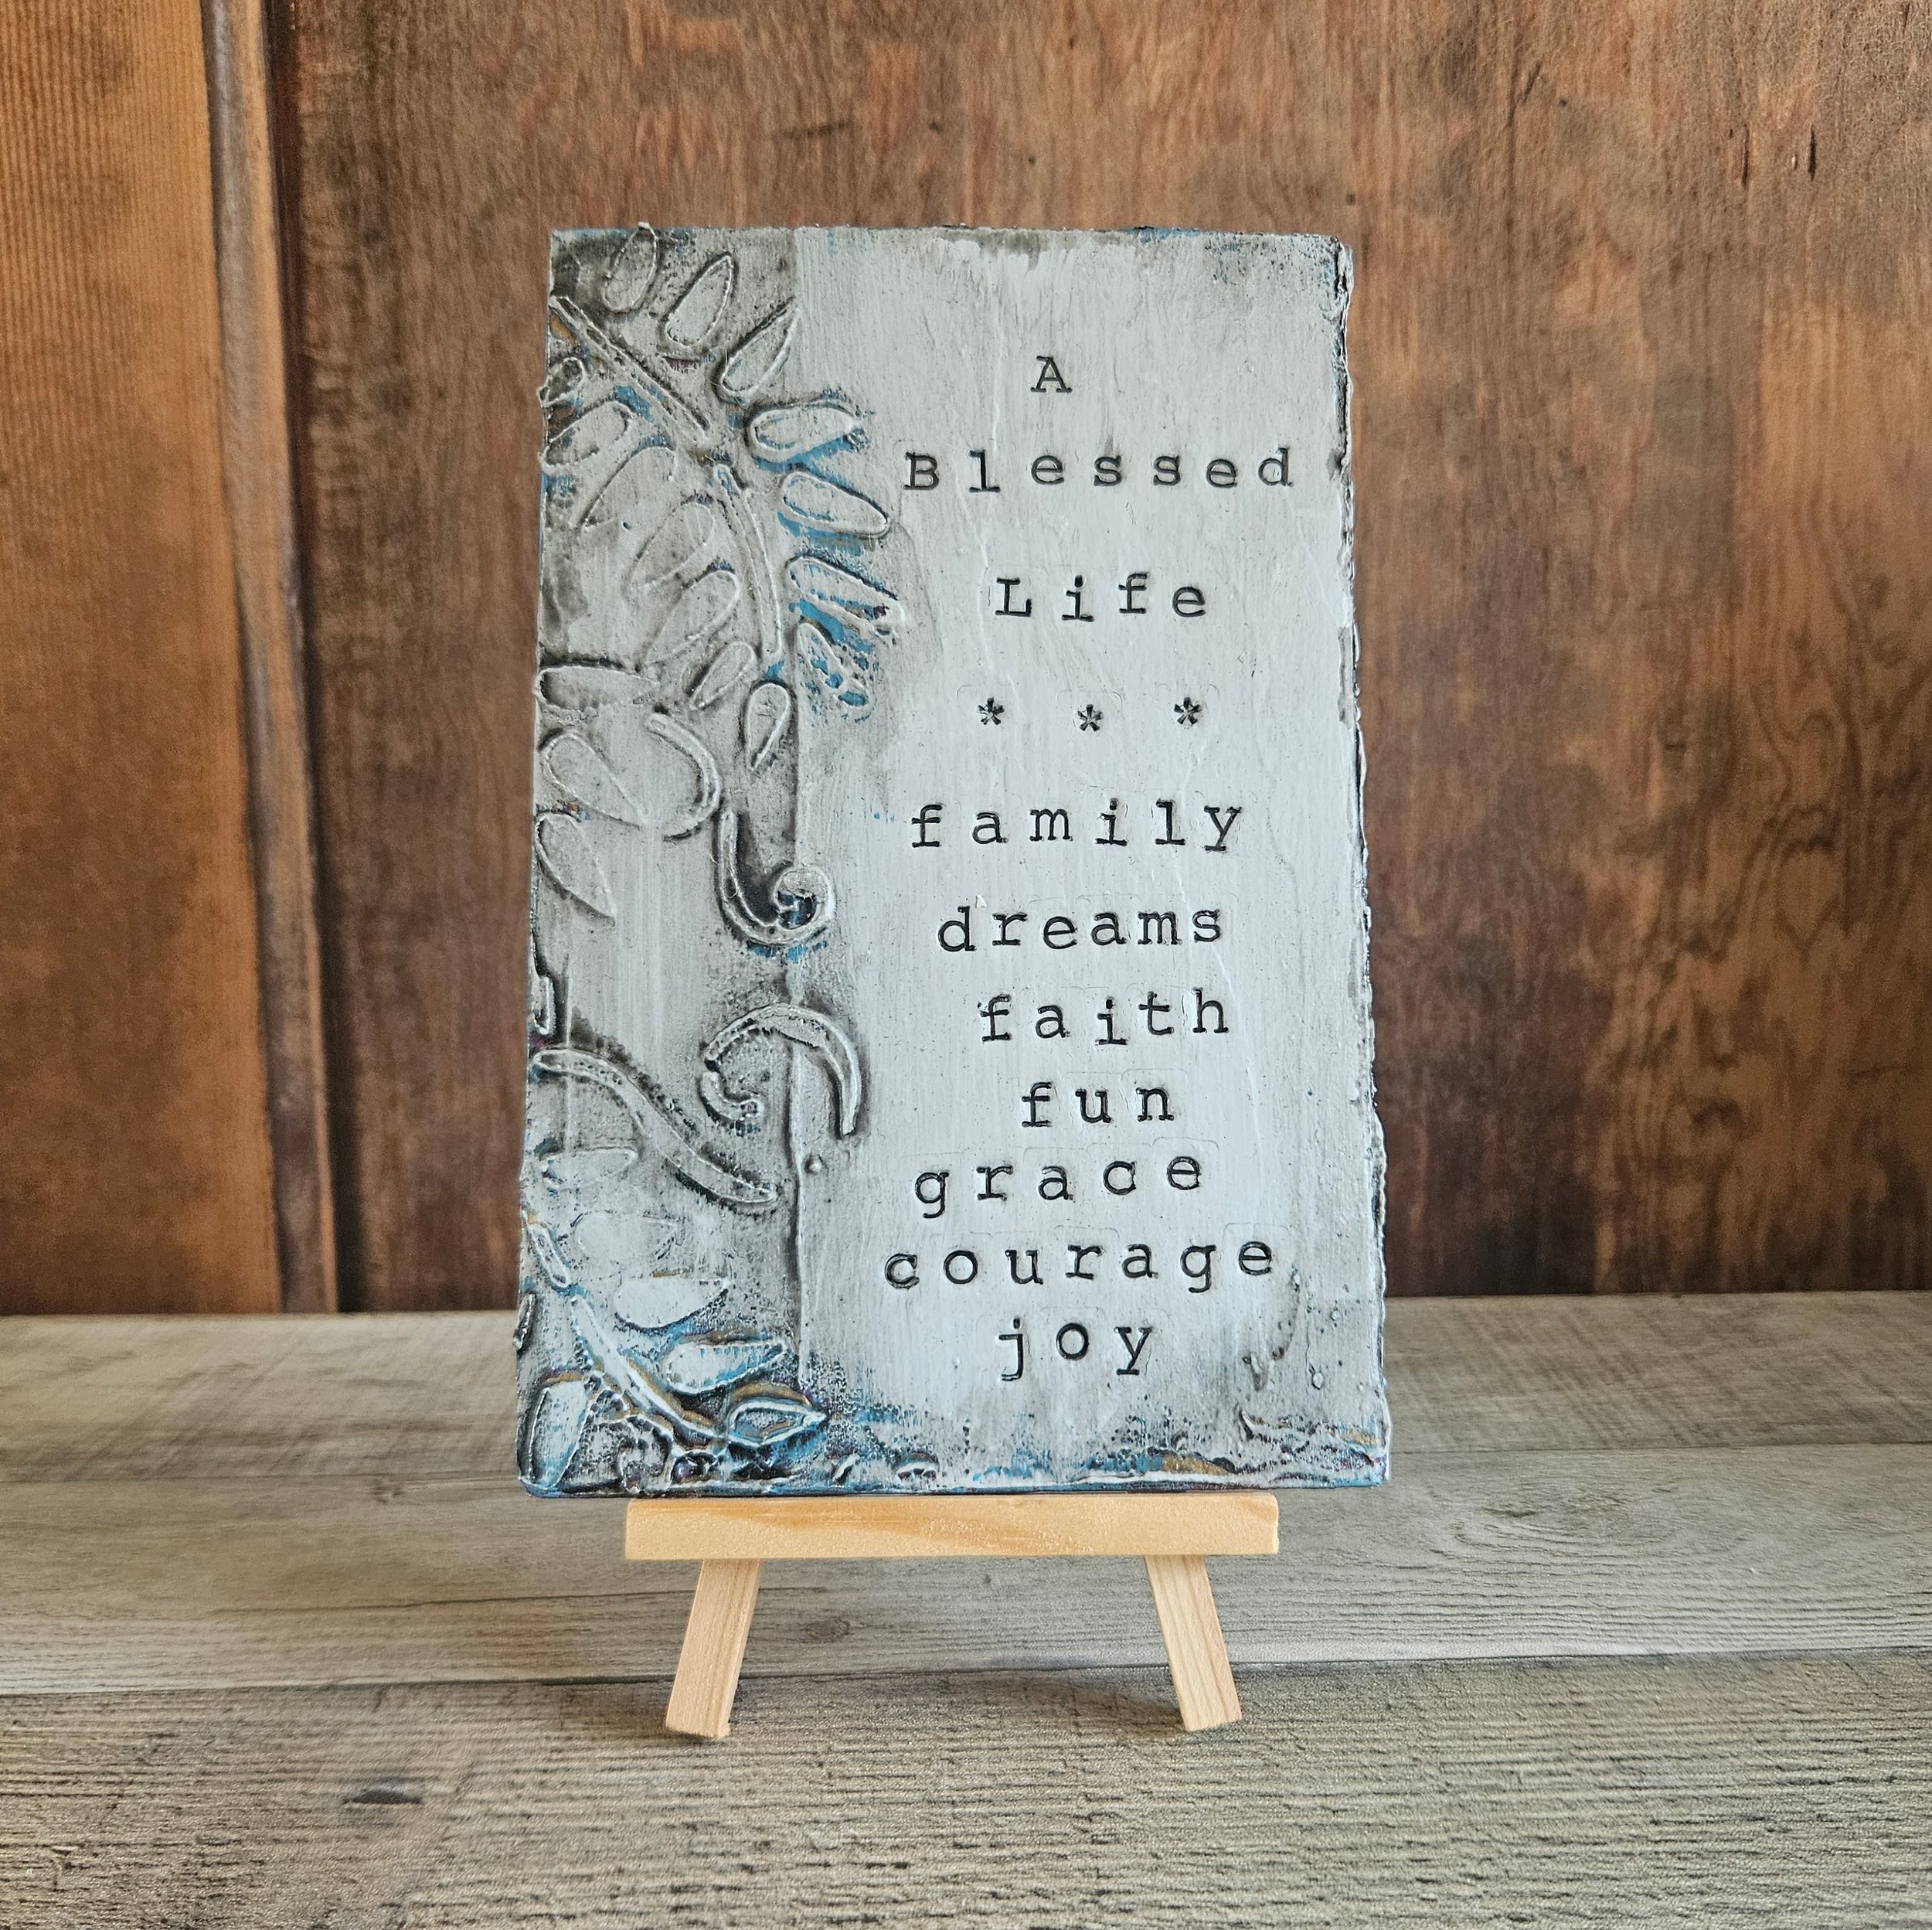 A
Blessed
Life
* * *
family
dreams
faith
fun
grace
courage
joy